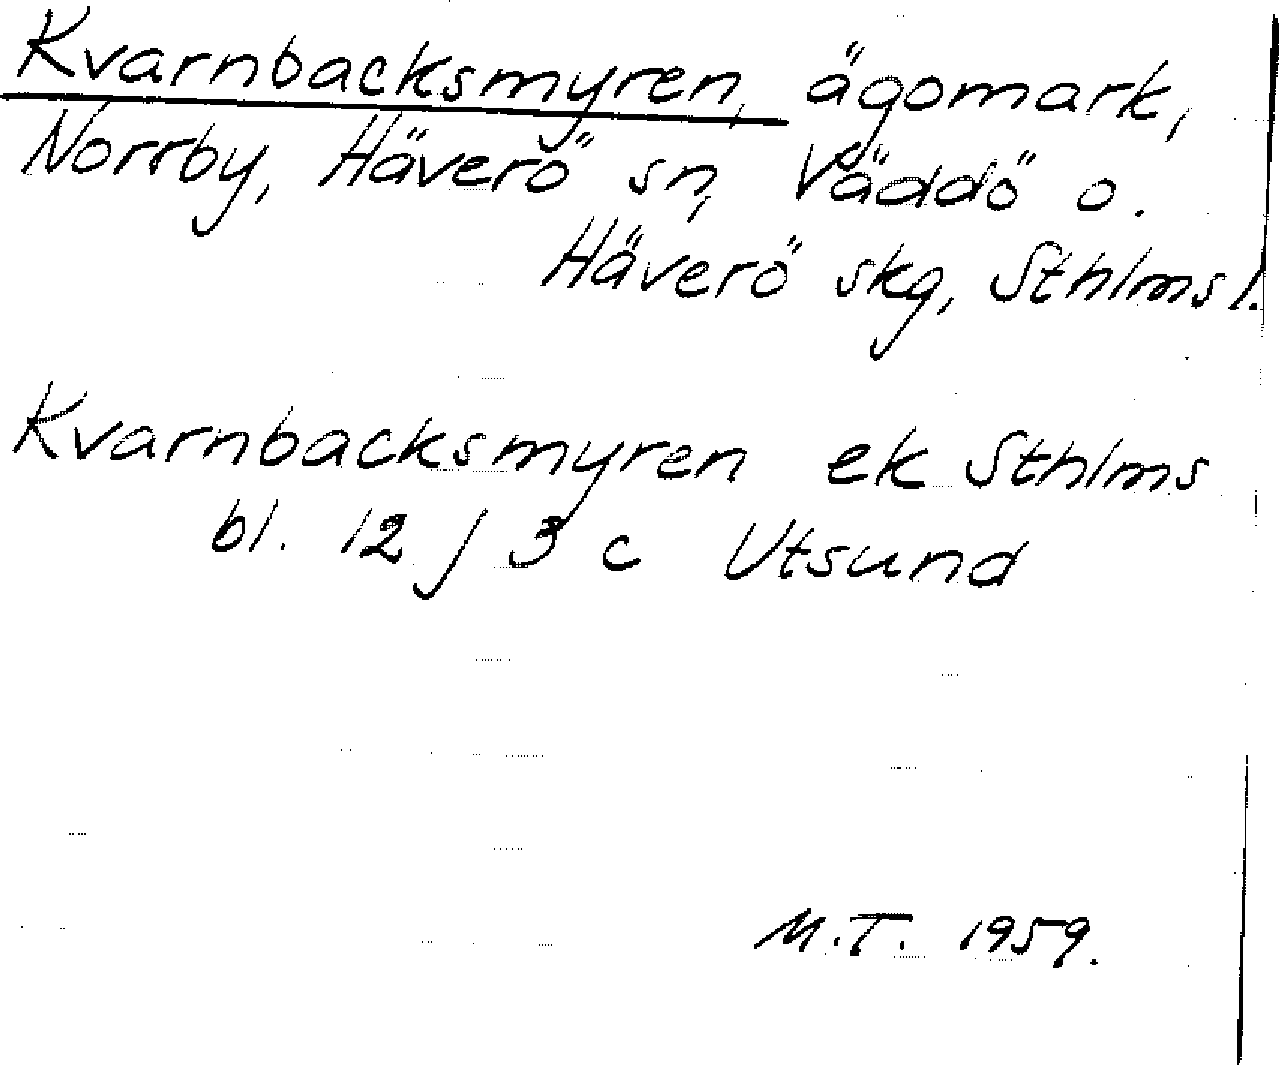 Kvarnbacksmyren, ägomark,
Norrby, Häverö sn, Väddö o.
Häverö skg, Sthlms l.
Kvarnbacksmyren ek Sthlms
bl. 12 j 3 c Utsund
M.T. 1959.